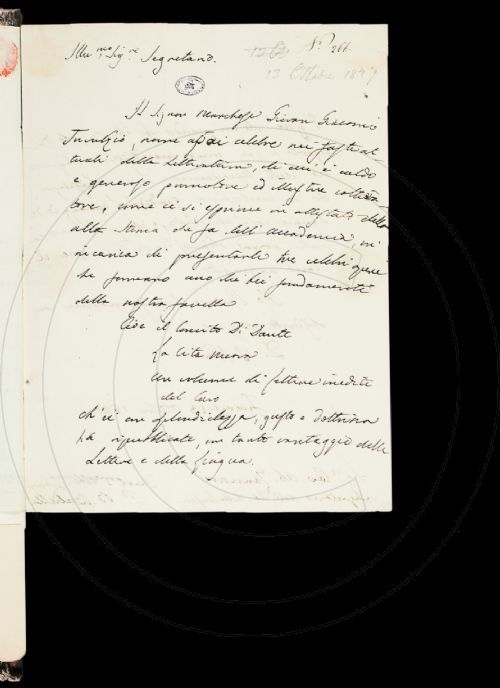 N.º 266
13 Ottobre 1827
Illu.mo Sig.re Segretario.
Il Signor Marchese Giovan Giacomo
Trivulzio, nome assai celebre nei fasti at-
tuali della Letteratura, di cui è caldo
e generoso promotore ed illustre coltiva-
tore, come ei si esprime in attestato della
alta stima che fa dell'accademia, m'
incarica di presentarle tre celebri opere
che formano uno dei bei fondamenti
della nostra favella
Cioè il Convito Di Dante
La Vita Nuova
un volume di lettere inedite
del Caro
ch'ei con splendidezza, gusto e dottrina
ha ripubblicate, con tanto vantaggio delle
Lettere e della Lingua.